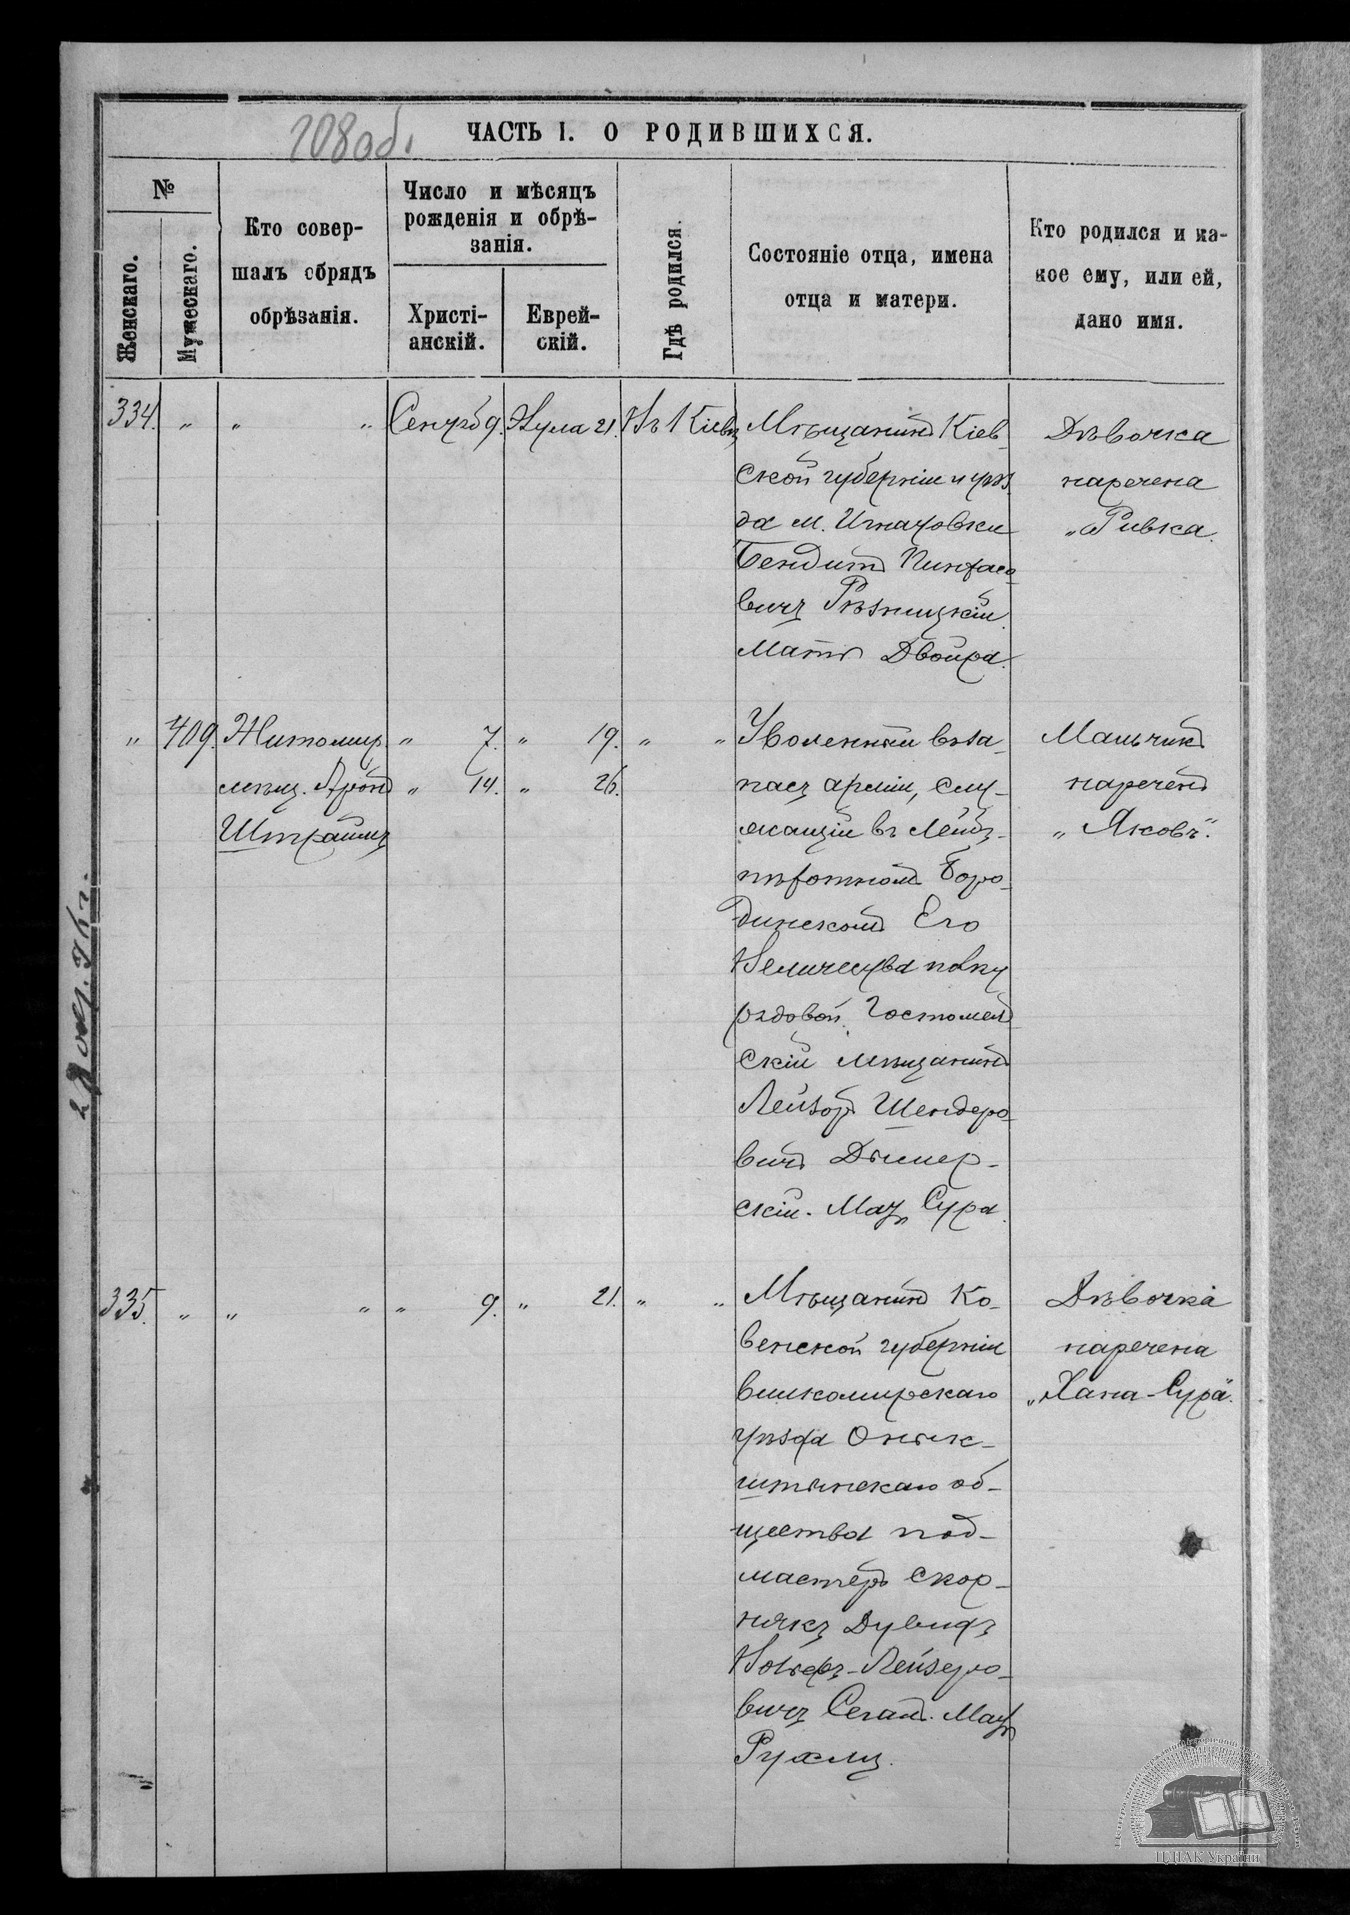 108 об.
ЧАСТЬ I. О РОДИВШИХСЯ.
№
Женскаго.
Мужескаго.
Кто совер-
шалъ обрядъ
обрѣзанія.
Число и мѣсяцъ
рожденія и обрѣ-
занія.
Христі-
анскій.
Еврей-
скій.
Гдѣ родился.
Состояніе отца, имена
отца и матери.
Кто родился и ка-
кое ему, или ей,
дано имя.
334. " " " 9. 21. Въ Кіевѣ
Мѣщанинъ Кіев-
ской губерніи и уѣз-
да м. Игнатовки
Бендитъ Пинхасо-
вичъ Рѣзницкій.
Мать Двойра.
Дѣвочка
наречена
"Ривка.
" 409. Житомир.
мѣщ. Аронъ
Штраймъ
" 7. " 19. " "
" 14. " 26.
Уволенный въ за-
пасъ арміи, слу-
жащій въ Лейбъ-
пѣхотномъ Боро-
динскомъ Его
Величества полку
рядовой, Гостомель-
скій мѣщанинъ
Лейзоръ Шендеро-
вичъ Дымер-
скій. Мать Сура.
Мальчикъ
нареченъ
"Яковъ".
335. " " " " 9. " 21. " "
Мѣщанинъ Ко-
венской губерніи
Вилкомирскаго
уѣзда Оник-
штынскаго об-
щества под-
мастеръ скор-
някъ Дувидъ
Вольфъ-Лейзеро-
вичъ Сегалъ. Мать
Рухля.
Дѣвочка
наречена
"Хана-Сура".
ЦДІАК України